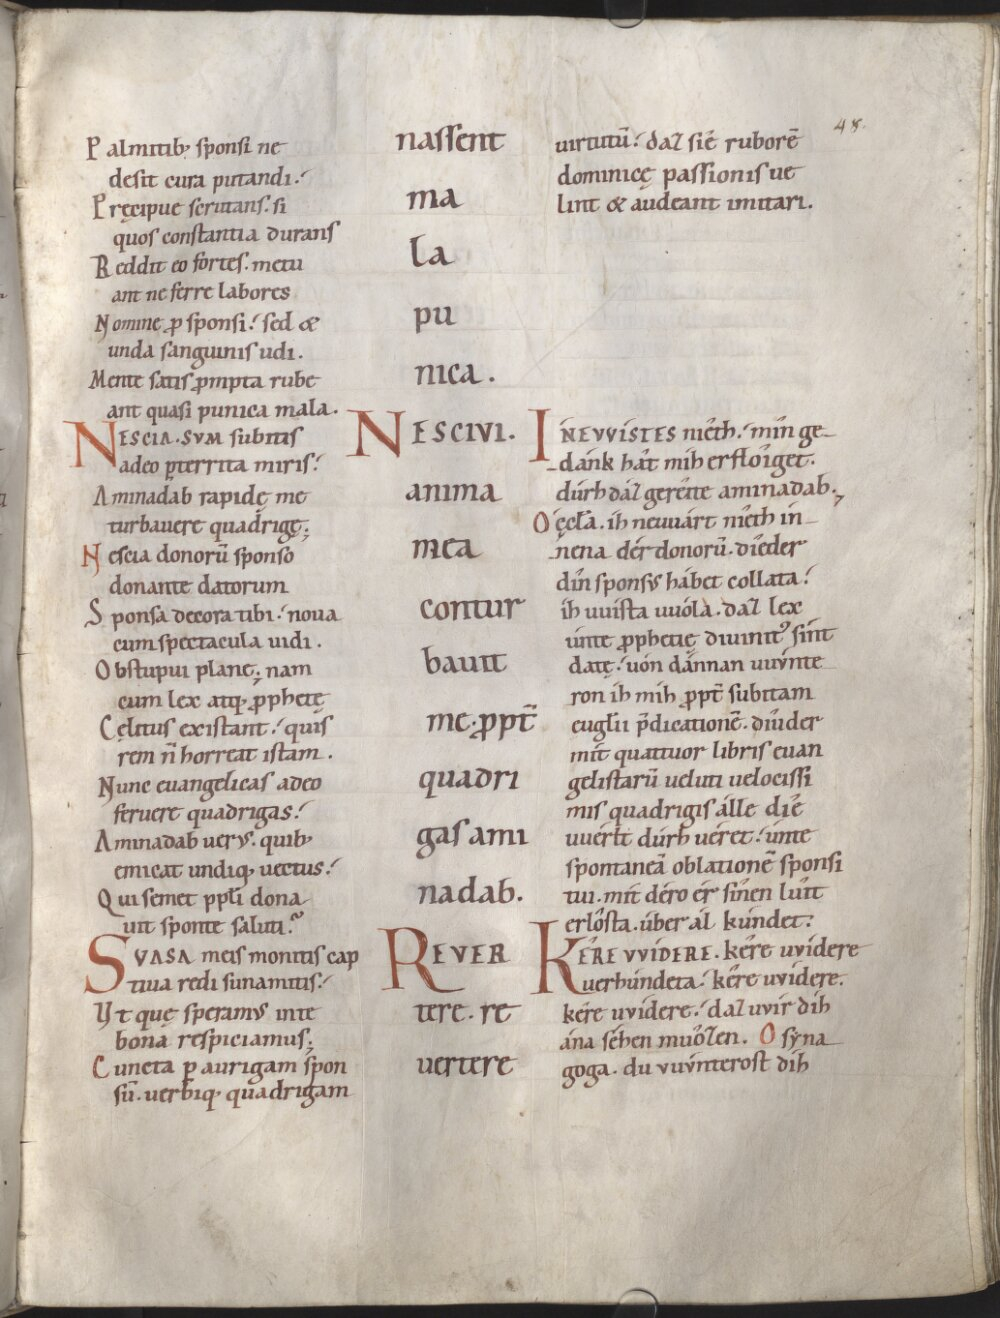 48.
Palmitib; sponsi ne
desit cura putandi.
Pręcipue scrutans. si
quos constantia durans
Reddit eo fortes. metu
ant ne ferre labores
Nomine ꝓ sponsi. sed &
unda sanguinis udi.
Mente satis ꝓmpta rube
ant quasi punica mala.
NESCIA. SVM subitis
adeo ꝑterrita miris.
Aminadab rapidę me
turbauere quadrigę;
Nescia donorū sponso
donante datorum
Sponsa decora tibi. noua
cum spectacula uidi.
Obstupui plane; nam
cum lex atq; ꝓphetę
Cęlitus existant. quis
rem n̄ horreat istam.
Nunc euangelicas adeo
feruere quadrigas.
Aminadab uerꝰ. quib;
emicat undiq; uectus.
Qui semet ppłi dona
uit sponte saluti.
SVASA meis monitis cap
tiua redi sunamitis.
Vt quę speramꝰ in te
bona respiciamus;
Cuncta ꝑ aurigam spon
sū. uerbiq; quadrigam
nassent
ma
la
pu
nica.
NESCIVI.
anima
mea
contur
bauit
me. ꝓpt̄
quadri
gas ami
nadab.
REVER
tere. re
uertere
uirtutū. daz sie ruborē
dominicę passionis ue
lint & audeant imitari.
INEVVISTES nieth. min ge-
dank hat mih erfloiget.
durh daz gereite aminadab.
O ęcła. ih neuuart nieth in-
nena der donorū. dieder
din sponsus habet collata.
ih uuista uuola. daz lex
unte ꝓphetię diuinitꝰ sint
datę. uon dannan uuunte
ron ih mih ꝓpt̄ subitam
euglii p̄dicationē. diuder
mit quattuor libris euan
gelistarū ueluti uelocissi
mis quadrigis alle die
uuerlt durh ueret. unte
spontaneā oblationē sponsi
tui. mit dero er sinen luit
erlosta. uber al kundet.
KERE VVIDERE. kere uuidere
uerhundeta. kere uuidere.
kere uuidere. daz uuir dih
ana sehen muozen. O syna
goga. du uuunterost dih